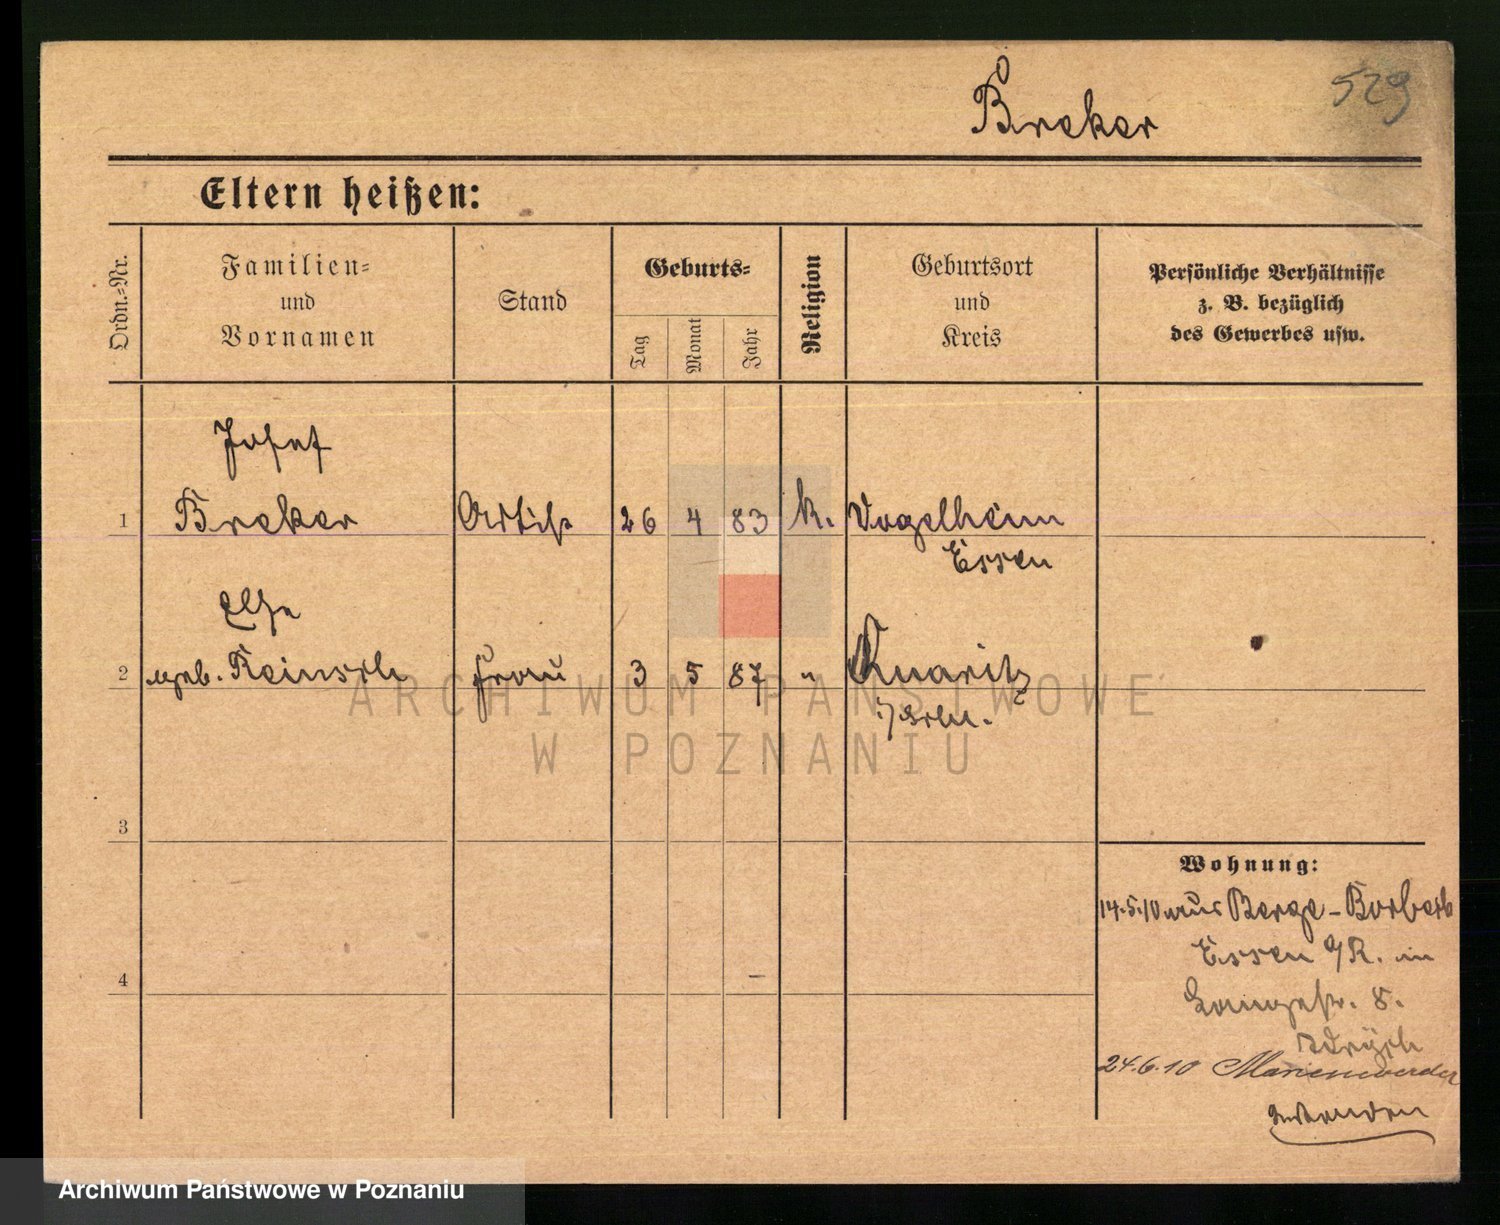 529
Breker
Eltern heißen:
Ordn.-Nr.
Familien-
und
Vornamen
Stand
Geburts-
Tag
Monat
Jahr
Religion
Geburtsort
und
Kreis
Persönliche Verhältnisse
z. B. bezüglich
des Gewerbes usw.
Josef
1 Breker Artist 26 4 83 k. Vogelheim
Essen
Else
2 geb. Reinsch Frau 3 5 87 " Knaritz
ARCHIWUM PAŃSTWOWE
W POZNANIU
3
Wohnung:
14.5.10 aus Berge-Borbeck
Essen a/R. in
8.
4
24.6.10 Marienwerder
Archiwum Państwowe w Poznaniu